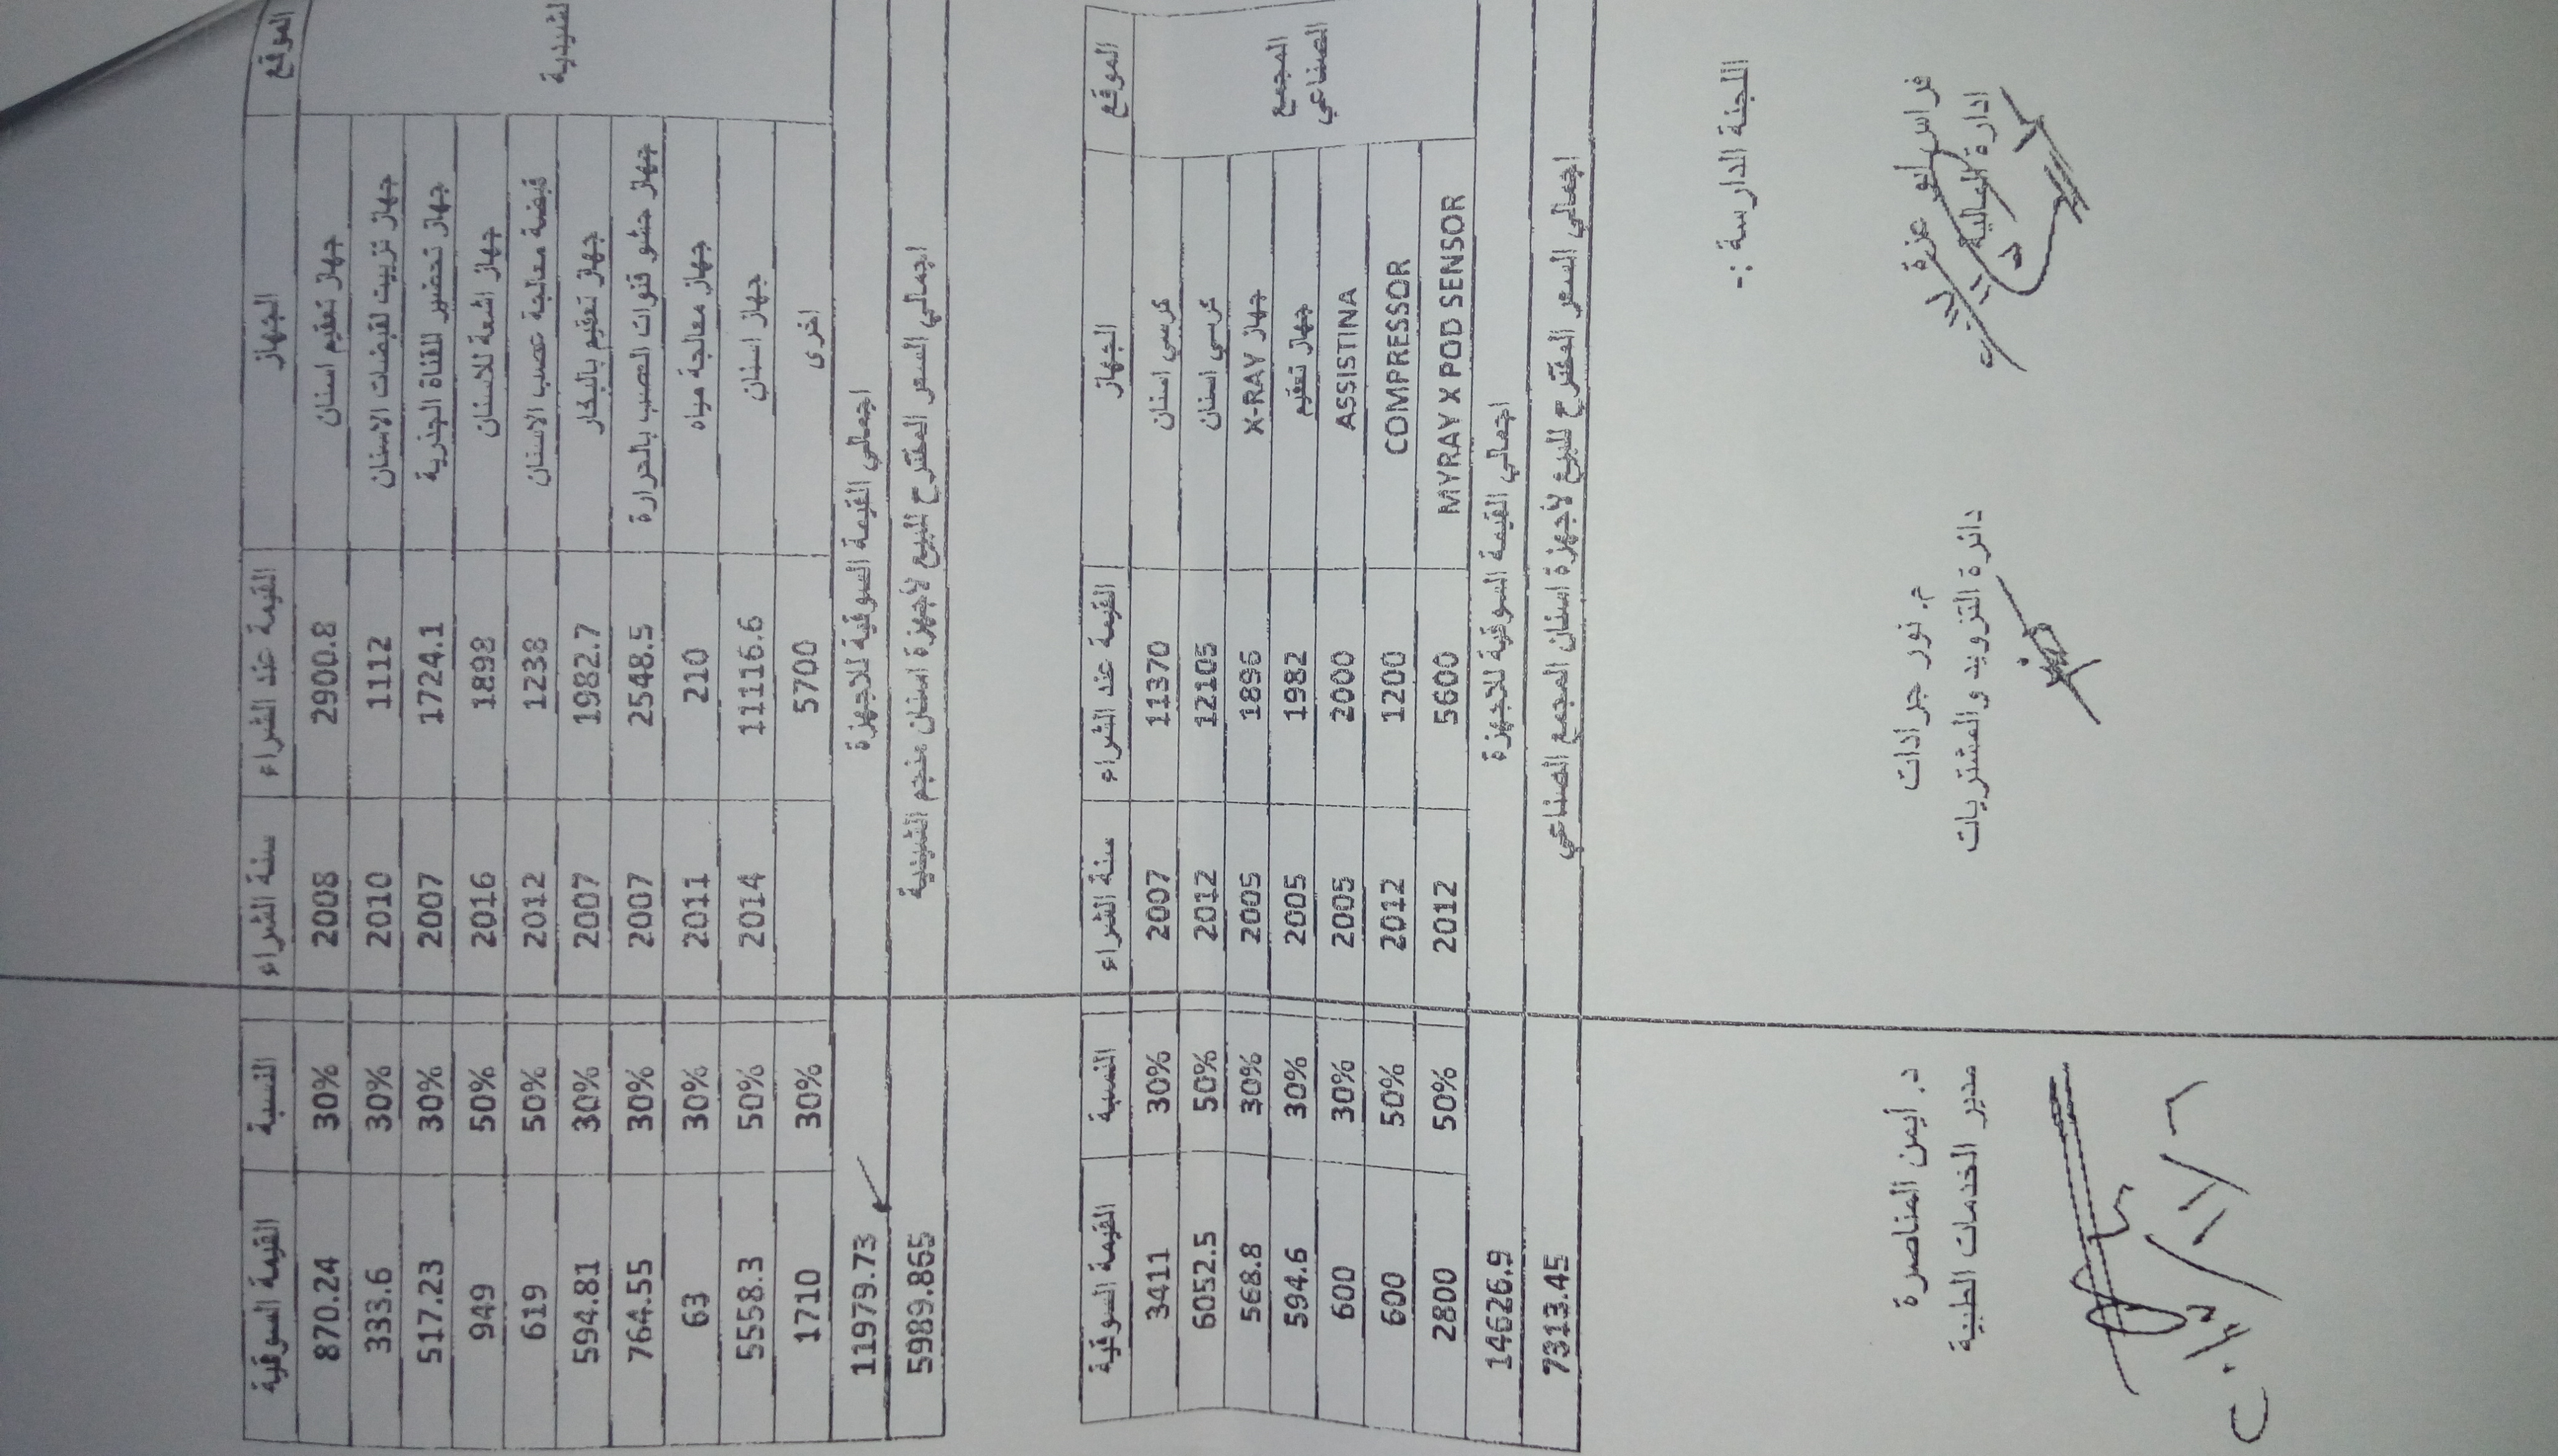 الموقع الجهاز القيمة عند الشراء سنة الشراء النسبة القيمة السوقية
جهاز تعقيم اسنان 2900.8 2008 30% 870.24
جهاز تزييت لقبضات الاسنان 1112 2010 30% 333.6
جهاز تحضير للقناة الجذرية 1724.1 2007 30% 517.23
جهاز اشعة للاسنان 1898 2016 50% 949
لشيدية قبضة معالجة عصب الاسنان 1238 2012 50% 619
جهاز تعقيم بالبخار 1982.7 2007 30% 594.81
جهاز حشو قنوات العصب بالحرارة 2548.5 2007 30% 764.55
جهاز معالجة مياه 210 2011 30% 63
جهاز اسنان 11116.6 2014 50% 5558.3
اخرى 5700 30% 1710
اجمالي القيمة السوقية للاجهزة 11979.73
اجمالي السعر المقترح للبيع لأجهزة اسنان منجم الشيدية 5989.865
الموقع الجهاز القيمة عند الشراء سنة الشراء النسبة القيمة السوقية
كرسي اسنان 11370 2007 30% 3411
كرسي اسنان 12105 2012 50% 6052.5
جهاز X-RAY 1896 2005 30% 568.8
المجمع الصناعي جهاز تعقيم 1982 2005 30% 594.6
ASSISTINA 2000 2005 30% 600
COMPRESSOR 1200 2012 50% 600
MYRAY X POD SENSOR 5600 2012 50% 2800
اجمالي القيمة السوقية للاجهزة 14626.9
اجمالي السعر المقترح للبيع لأجهزة اسنان المجمع الصناعي 7313.45
اللجنة الدارسة :-
فراس ابو عزة م. نور جرادات د. أيمن المناصرة
ادارة المالية دائرة التزويد والمشتريات مدير الخدمات الطبية